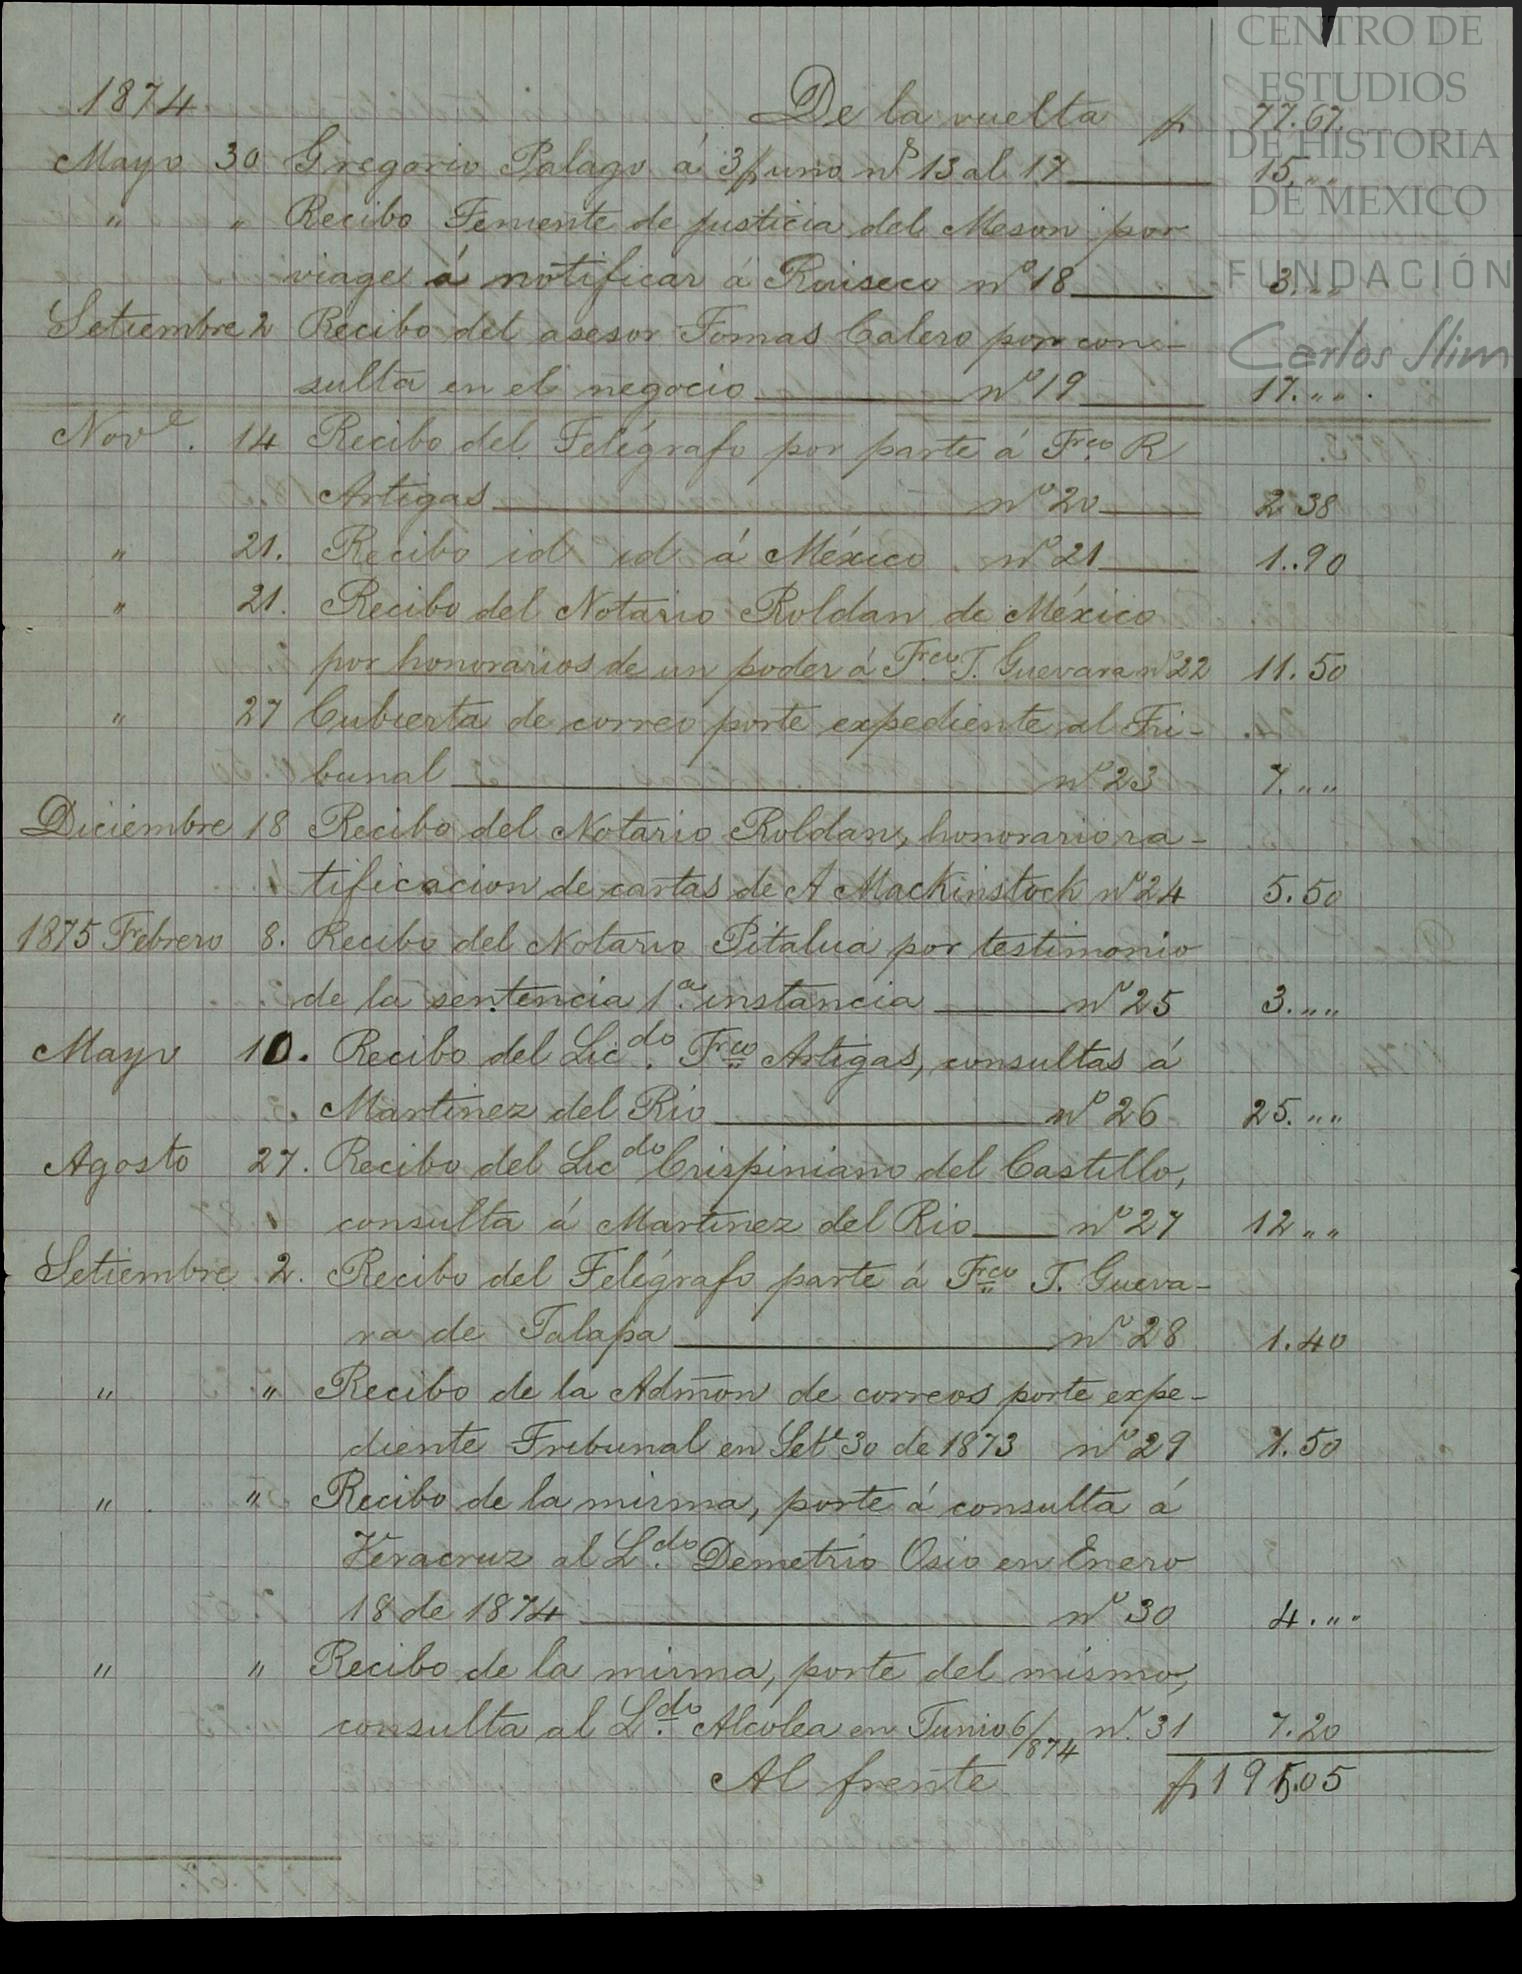 CENTRO DE
ESTUDIOS
DE HISTORIA
DE MEXICO
FUNDACIÓN
Carlos Slim
1874 De la vuelta $ 77.67.
Mayo 30 Gregorio Palago á 3$ uno nº 13 al 17 15.,,
" " Recibo Teniente de justicia del Meson por
viage á notificar á Ruiseco nº 18 3.,,
Setiembre 2 Recibo del asesor Tomas Calero por con-
sulta en el negocio nº 19 17.,,.
Nove. 14 Recibo del Telégrafo por parte á Frco. R
Artigas nº 20 2.38
" 21. Recibo id id á México nº 21 1..90
" 21. Recibo del Notario Roldan de México
por honorarios de un poder á Frco. T. Guevara nº 22 11.50
" 27 Cubierta de correo porte expediente al Tri-
bunal nº 23 7.,,
Diciembre 18 Recibo del Notario Roldan, honorario ra-
tificacion de cartas de A Mackinstock nº 24 5.50
1875 Febrero 8. Recibo del Notario Pitalua por testimonio
de la sentencia 1.a instancia nº 25 3.,,
Mayo 10. Recibo del Licdo. Frco Artigas, consultas á
Martinez del Rio nº 26 25.,,
Agosto 27. Recibo del Licdo Crispiniano del Castillo,
consulta á Martinez del Rio nº 27 12 ,,
Setiembre 2. Recibo del Telégrafo parte á Frco T. Gueva-
ra de Jalapa nº 28 1.40
" " Recibo de la Admon de correos porte expe-
diente Tribunal en Sete 30 de 1873 nº 29 1.50
" " Recibo de la misma, porte á consulta á
Veracruz al Ldo. Demetrio Osio en Enero
18 de 1874 nº 30 4.,,
" " Recibo de la misma, porte del mismo,
consulta al Ldo. Alcolea en Junio 6/874 nº. 31 7.20
Al frente $ 195.05